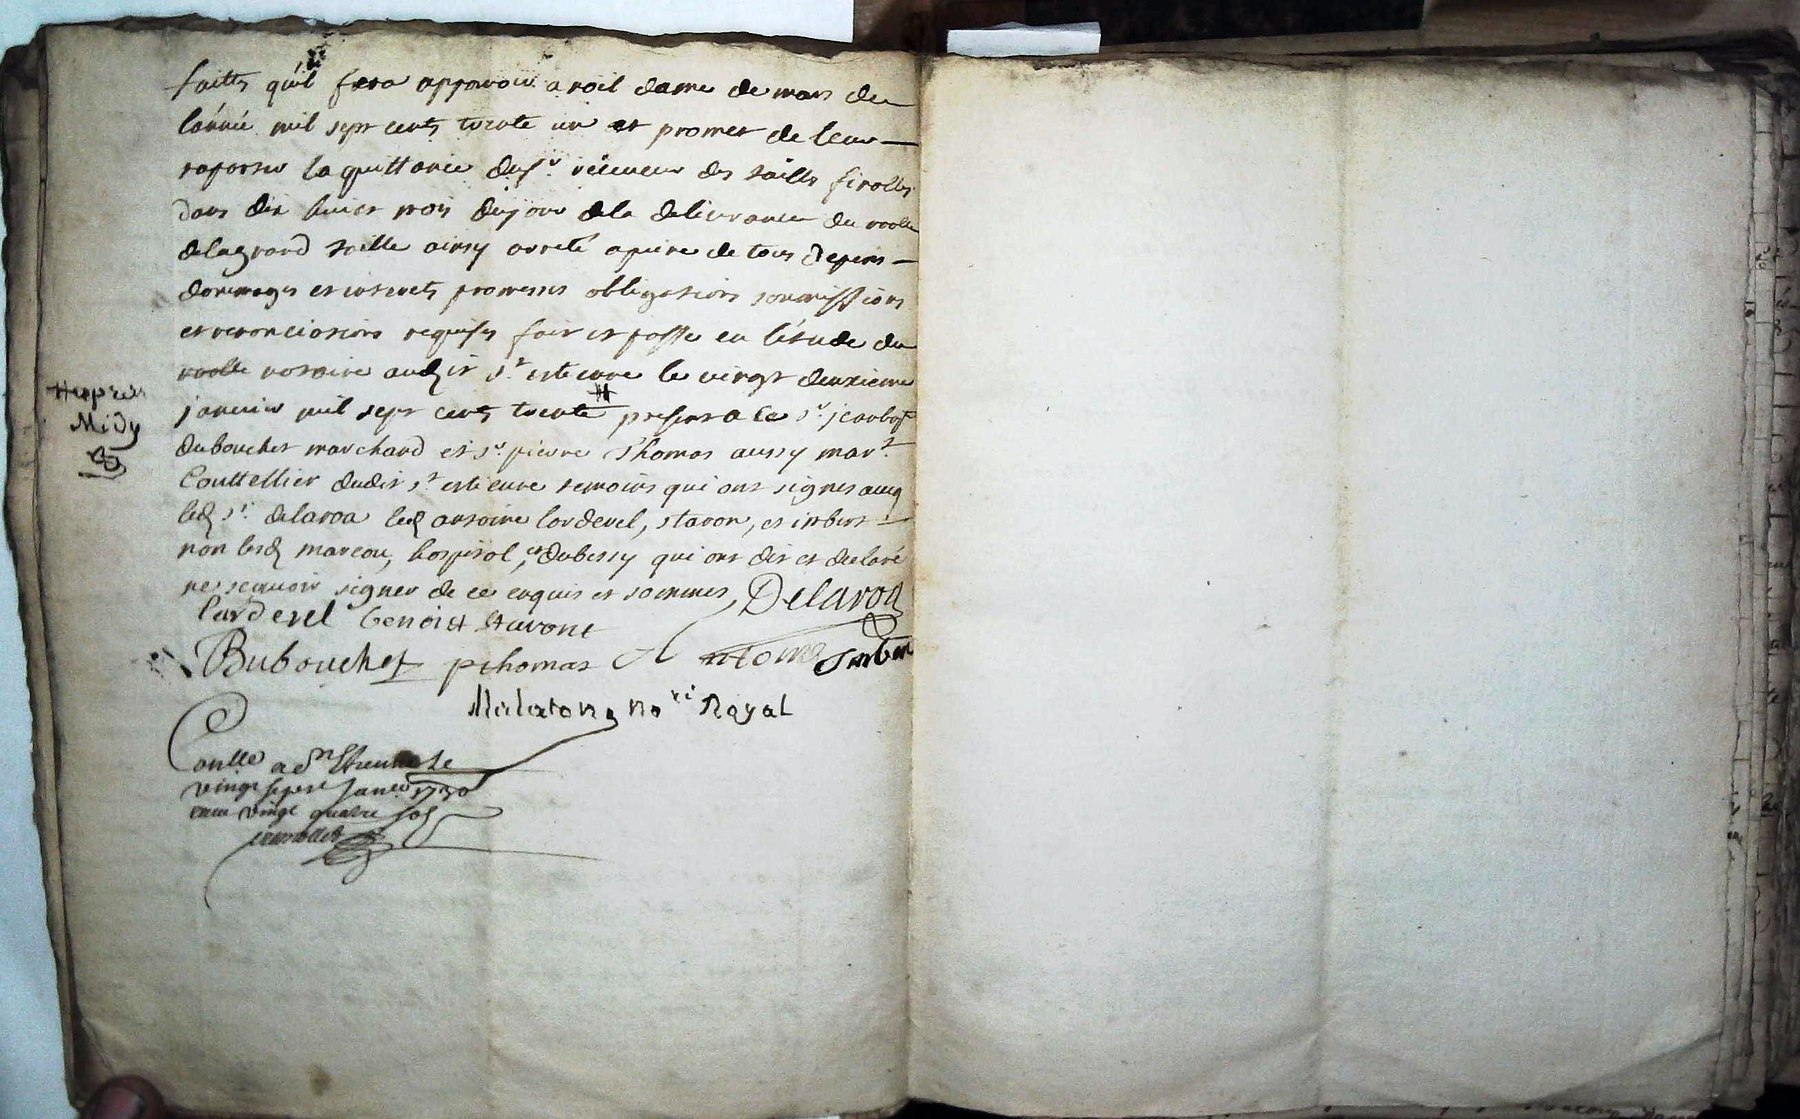 faitte qu'il fera apparoir a noil dame de mars de
lannée mil sept cents trente un et promet de leur
raporter la quittance dus.r receveur des tailles
dans dix huict mois dujour dela delivrance du roolle
delagrand taille ainsy arreté apeine de tous depens
dommages et interets promesses obligations soumissions
et renonciations requises fait et passe en l'étude du
roolle notaire audit s.t estienne le vingt deuxieme
janvier mil sept cents trente # presents le s.r jean bap.t
dubouchet marchand et s.r pierre Thomas aussy mar.t
Couttellier dudit s.t estienne temoins qui ont signes avecq
led s.r delaroa led antoine larderel, staron, et imbert
non lesd marcou, hospital, et dubessy qui ont dit et declaré
ne scavoir signer de ce enquis et sommes Delaroa
# apres
Midy
larderel benoist starone
Dubouchet pthomas Antoine Imber
no.re Royal
Conlle a St Etienne le
vingt sept Janv 1730
vingt quatre sols